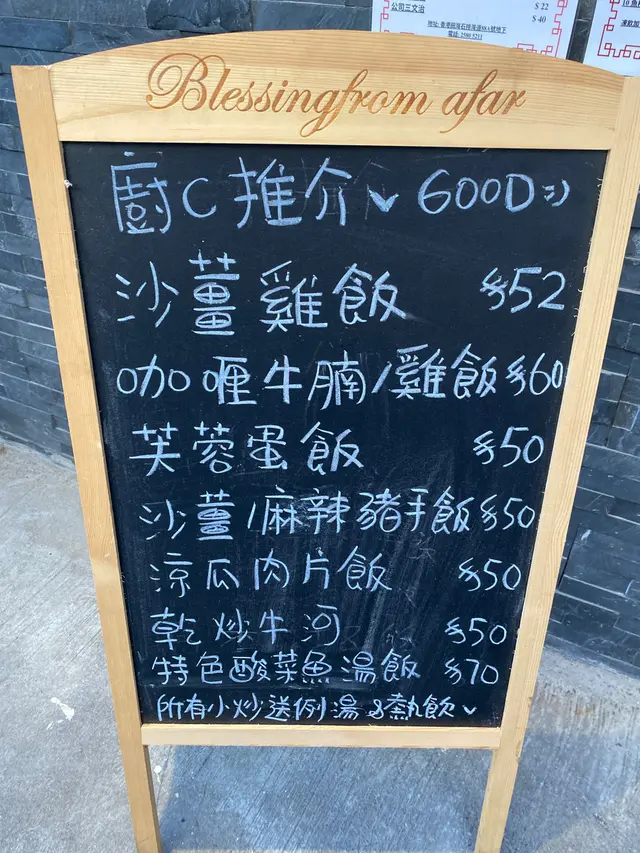 公司三文治
$22
$40
電話: 2580 5211
Blessing from afar
廚C推介 GOOD=))
沙薑雞飯 $52
咖喱牛腩/雞飯 $60
芙蓉蛋飯 $50
沙薑/麻辣豬手飯 $50
涼瓜肉片飯 $50
乾炒牛河 $50
特色酸菜魚湯飯 $70
所有小炒送例湯&熱飲